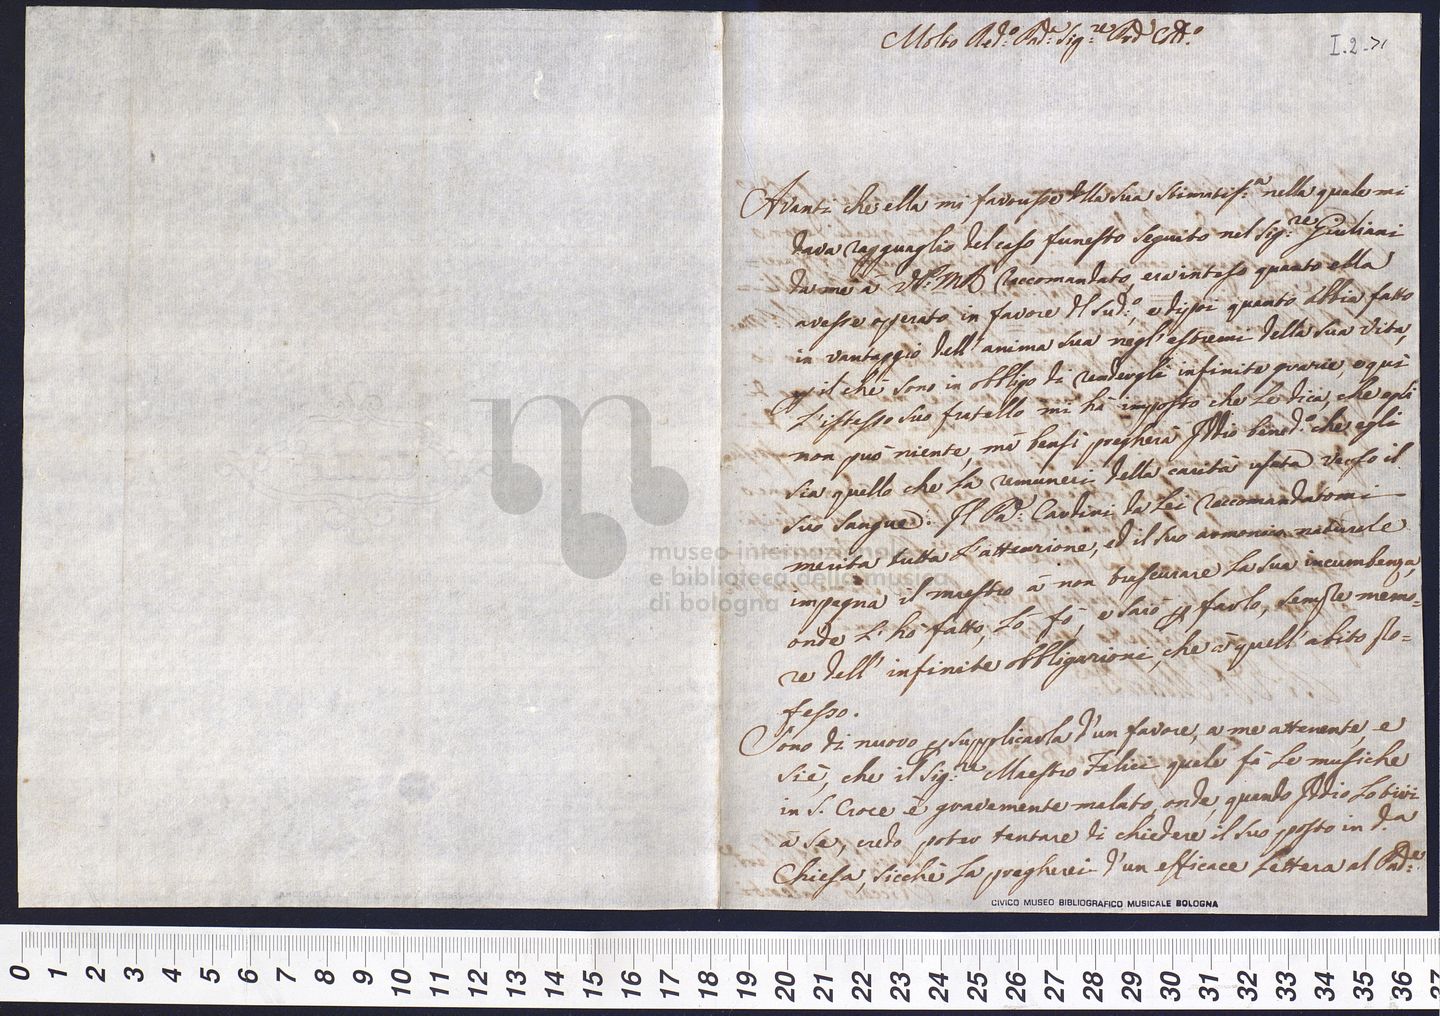 Molto Red:º Pad:ᵉ Sig:ʳᵉ Prõ Coll:º
I.2.71
Avanti che ella mi favorisse della sua stimatiss:ª nella quale mi
dava ragguaglio del caso funesto seguito nel Sig:ʳᵉ Giuliani
da me à V:P:MR raccomandato, era inteso quanto ella
avesse operato in favore del sud:º, e dipoi quanto abbia fatto
in vantaggio dell'anima sua negl'estremi della sua vita,
p il chè sono in obbligo di rendergli infinite grazie, e quì
l'istesso suo fratello mi hà imposto che Le dica, che egli
non può niente, mà bensì pregherà Iddio bened:º che egli
sia quello che La remuneri della carità usata verso il
suo sangue. Il Pad:ᵉ Cardini da Lei raccomandatomi
merita tutta L'attenzione, ed il suo armonico naturale
impegna il maestro à non trascurare La sua incumbenza,
onde L'hò fatto, Lo fò, e sarò p farlo, sempre memo=
re dell'infinite obbligazioni, che à quell'abito pro=
fesso.
Sono di nuovo p supplicarla d'un favore, a me attenente, e
si è, che il Sig:ʳᵉ Maestro Felici quale fà Le musiche
in S. Croce è gravemente malato, onde, quando Iddio Lo tiri
à Se, credo poter tentare di chiedere il suo posto in d:ª
Chiesa, sicchè La pregherei d'un efficace Lettera al Pad:ʳᵉ
CIVICO MUSEO BIBLIOGRAFICO MUSICALE BOLOGNA
museo internazionale
e biblioteca della musica
di bologna
0 1 2 3 4 5 6 7 8 9 10 11 12 13 14 15 16 17 18 19 20 21 22 23 24 25 26 27 28 29 30 31 32 33 34 35 36 37